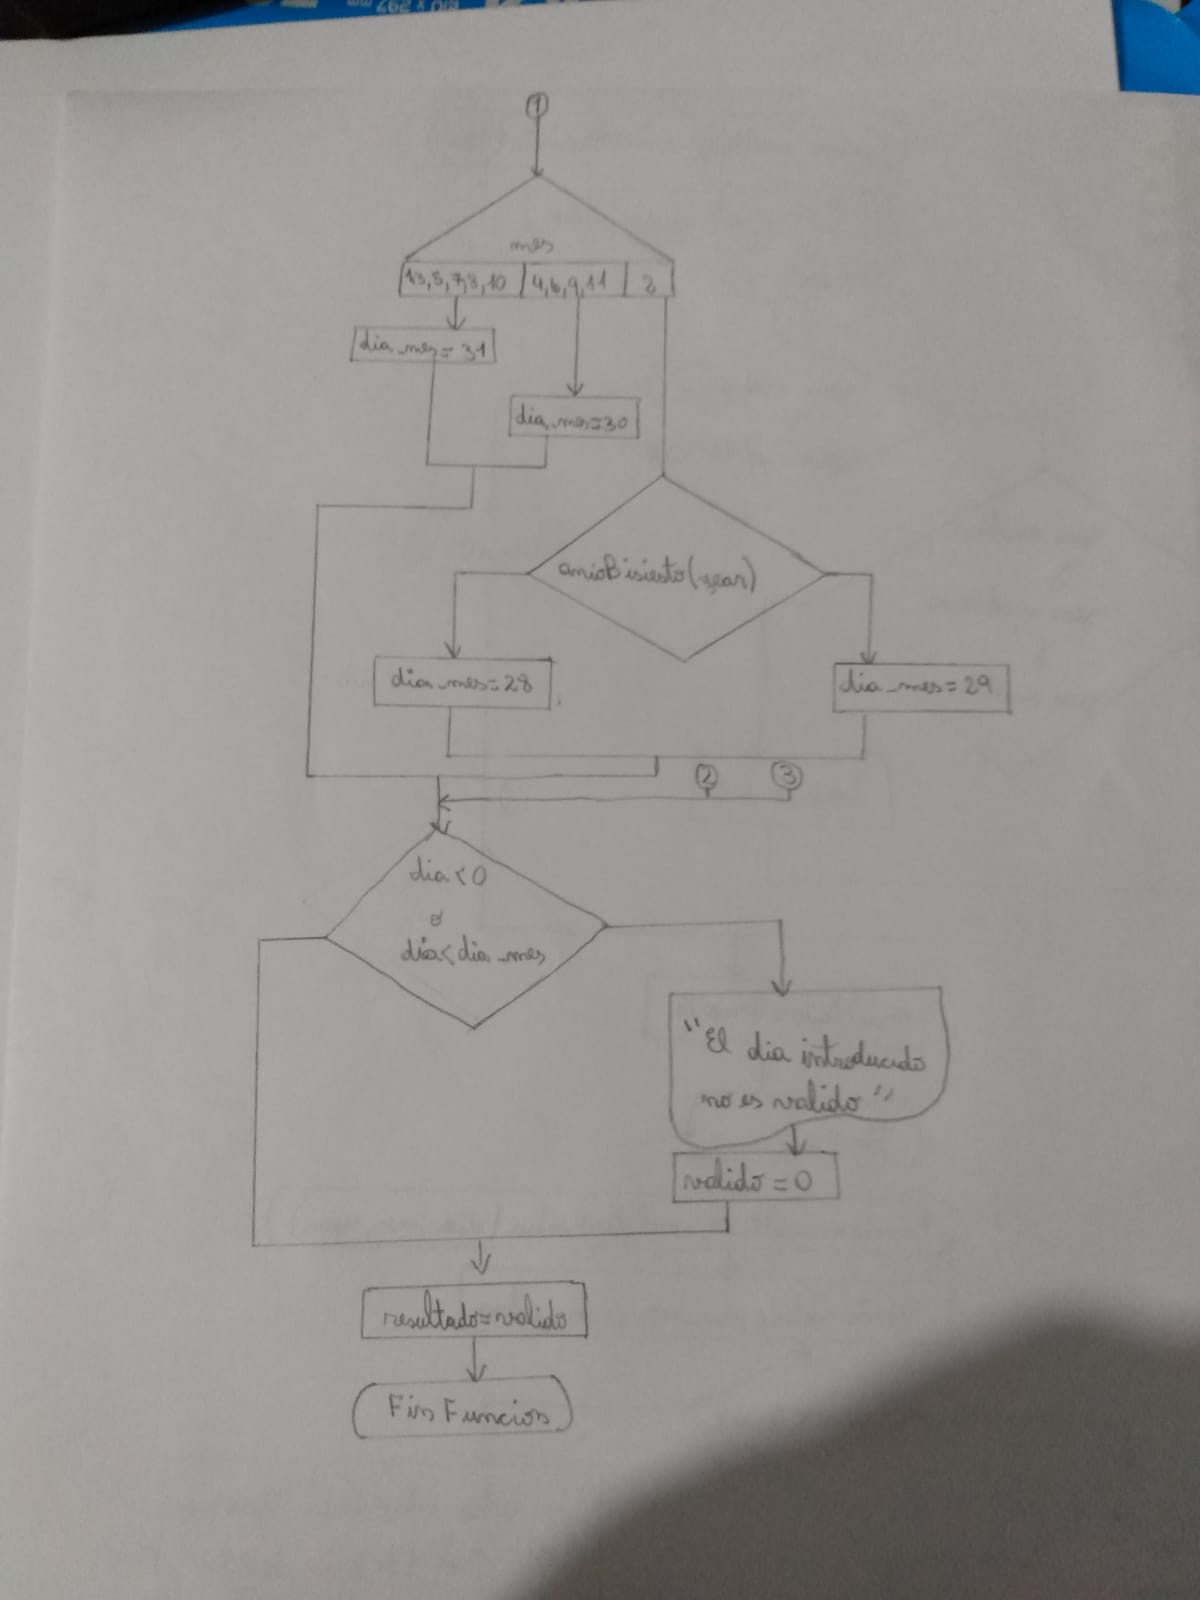 1
mes
1,3,5,7,8,10
4,6,9,11
2
dia_mes=31
dia_mes=30
anioBisiesto(year)
dia_mes=28
dia_mes=29
2
3
dia<0
o
dia<dia_mes
"El dia introducido
no es valido"
valido=0
resultado=valido
Fin Funcion